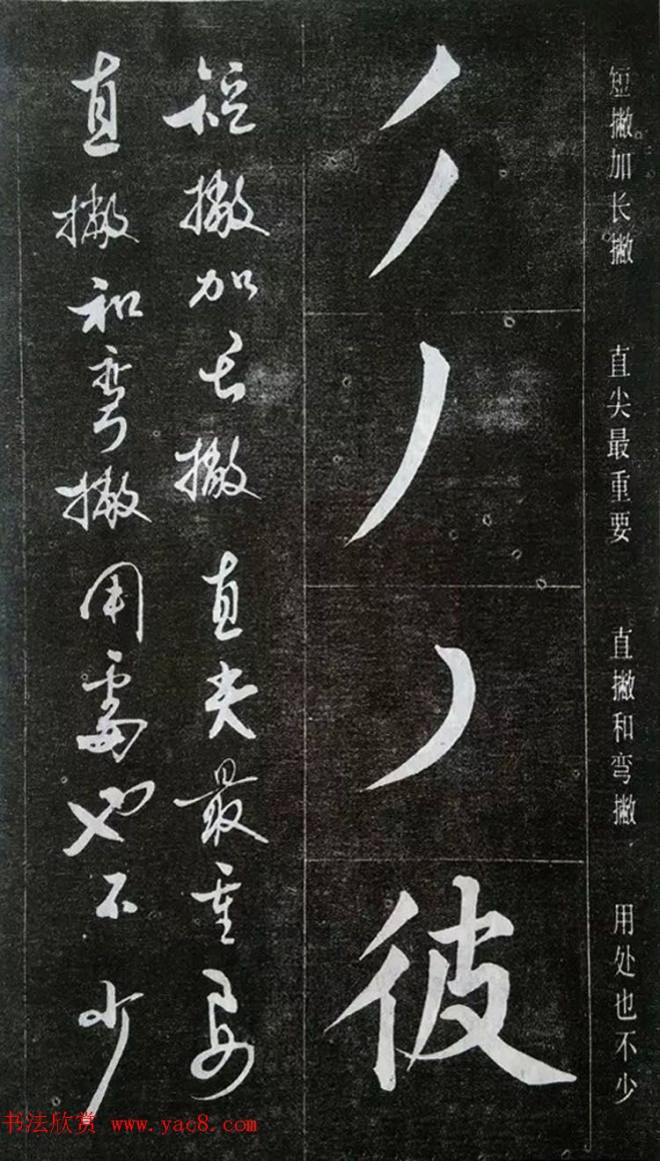 短撇加长撇 直尖最重要 直撇和弯撇 用处也不少
彼
短撇加长撇 直尖最重要
直撇和弯撇 用处也不少
书法欣赏 www.yac8.com